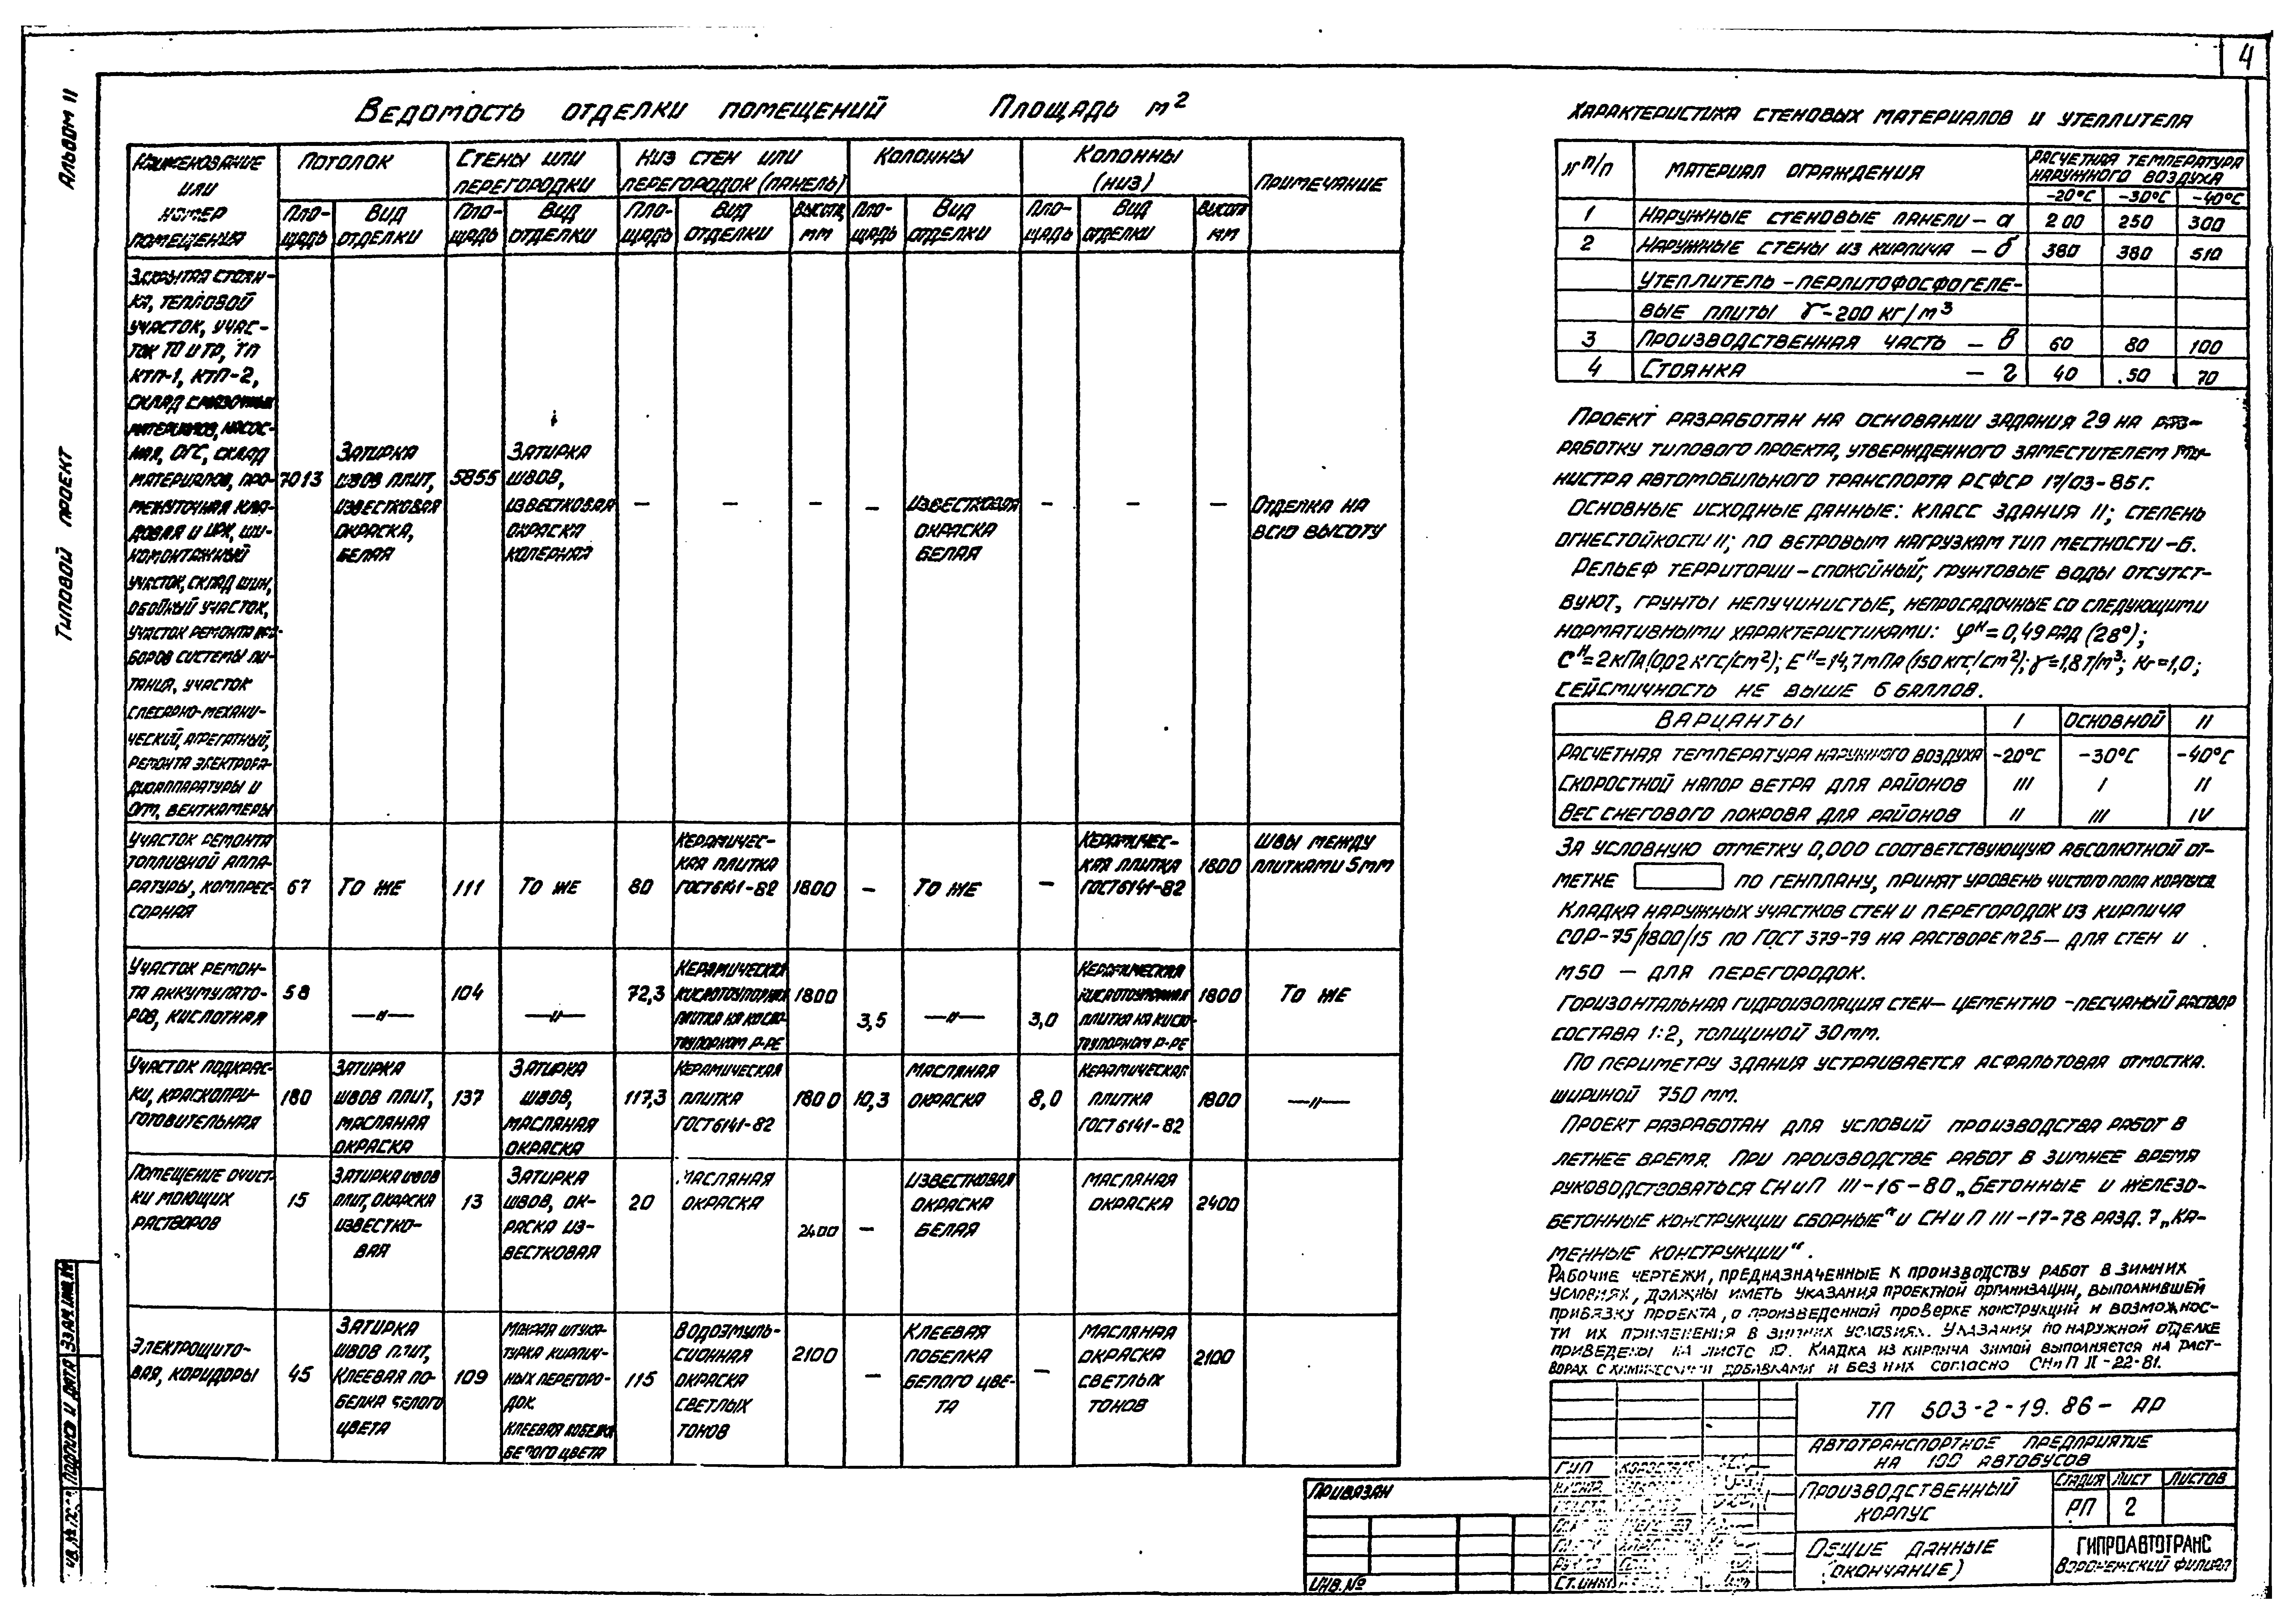 4
Альбом II
Типовой проект
Ведомость отделки помещений Площадь м²
Наименование или номер помещения
Потолок
Стены или перегородки
Низ стен или перегородок (панель)
Колонны
Колонны (низ)
Примечание
Площадь
Вид отделки
Площадь
Вид отделки
Площадь
Вид отделки
Высота, мм
Площадь
Вид отделки
Площадь
Вид отделки
Высота мм
Закрытая стоян-
ка, тепловой
участок, учас-
ток ТО и ТР, ТП
КТП-1, КТП-2,
склад смазочных
материалов, насос-
ная, ОГС, склад
материалов, про-
межуточная кла-
довая и ЦРК, ши-
номонтажный
участок, склад шин,
обойный участок,
участок ремонта при-
боров системы пи-
тания, участок
слесарно-механи-
ческий, агрегатный,
ремонта электрора-
диоаппаратуры и
от, венткамеры
7013
Затирка
швов плит,
известковая
окраска,
белая
5855
Затирка
швов,
известковая
окраска
колерная
—
—
—
—
Известковая
окраска
белая
—
—
—
Отделка на
всю высоту
Участок ремонта
топливной аппа-
ратуры, компрес-
сорная
67
То же
111
То же
80
Керамичес-
кая плитка
ГОСТ 6141-82
1800
—
То же
—
Керамичес-
кая плитка
ГОСТ 6141-82
1800
Швы между
плитками 5мм
Участок ремон-
та аккумулято-
ров, кислотная
58
—"—
104
—"—
72,3
Керамическая
кислотоупорная
плитка на кисло-
тоупорном р-ре
1800
3,5
—"—
3,0
Керамическая
кислотоупорная
плитка на кисло-
тоупорном р-ре
1800
То же
Участок подкрас-
ки, краскопри-
готовительная
180
Затирка
швов плит,
масляная
окраска
137
Затирка
швов,
масляная
окраска
117,3
Керамическая
плитка
ГОСТ 6141-82
1800
10,3
Масляная
окраска
8,0
Керамическая
плитка
ГОСТ 6141-82
1800
—"—
Помещение очист-
ки моющих
растворов
15
Затирка швов
плит, окраска
известко-
вая
13
Затирка
швов, ок-
раска из-
вестковая
20
Масляная
окраска
2400
—
Известковая
окраска
белая
Масляная
окраска
2400
Электрощито-
вая, коридоры
45
Затирка
швов плит,
клеевая по-
белка белого
цвета
109
Мокрая штука-
турка кирпич-
ных перегоро-
док.
Клеевая побелка
белого цвета
115
Водоэмуль-
сионная
окраска
светлых
тонов
2100
—
Клеевая
побелка
белого цве-
та
—
Масляная
окраска
светлых
тонов
2100
Характеристика стеновых материалов и утеплителя
№ п/п
Материал ограждения
Расчетная температура
наружного воздуха
-20°C -30°C -40°C
1 Наружные стеновые панели – а 200 250 300
2 Наружные стены из кирпича – б 380 380 510
Утеплитель – перлитофосфогеле-
вые плиты γ-200 кг/м³
3 Производственная часть – в 60 80 100
4 Стоянка – г 40 50 70
Проект разработан на основании задания 29 на раз-
работку типового проекта, утвержденного заместителем Ми-
нистра автомобильного транспорта РСФСР 17/03-85г.
Основные исходные данные: класс здания II; степень
огнестойкости II; по ветровым нагрузкам тип местности – Б.
Рельеф территории – спокойный; грунтовые воды отсутст-
вуют, грунты непучинистые, непросадочные со следующими
нормативными характеристиками: φн=0,49 рад (28°);
Cн=2кПа(0,02 кгс/см²); Eн=14,7мПа (150 кгс/см²); γ=1,8т/м³; Kг=1,0;
сейсмичность не выше 6 баллов.
Варианты I Основной II
Расчетная температура наружного воздуха -20°C -30°C -40°C
Скоростной напор ветра для районов III I II
Вес снегового покрова для районов II III IV
За условную отметку 0,000 соответствующую абсолютной от-
метке по генплану, принят уровень чистого пола корпуса
Кладка наружных участков стен и перегородок из кирпича
СОР-75/1800/15 по ГОСТ 379-79 на растворе М25 – для стен и
М50 – для перегородок.
Горизонтальная гидроизоляция стен – цементно-песчаный раствор
состава 1:2, толщиной 30мм.
По периметру здания устраивается асфальтовая отмостка.
шириной 750 мм.
Проект разработан для условий производства работ в
летнее время. При производстве работ в зимнее время
руководствоваться СНиП III-16-80 „Бетонные и железо-
бетонные конструкции сборные“ и СНиП III-17-78 разд. 7 „Ка-
менные конструкции“.
Рабочие чертежи, предназначенные к производству работ в зимних
условиях, должны иметь указания проектной организации, выполнившей
привязку проекта, о произведенной проверке конструкций и возможнос-
ти их применения в зимних условиях. Указания по наружной отделке
приведены на листе 10. Кладка из кирпича зимой выполняется на раст-
ворах с химическими добавками и без них согласно СНиП II-22-81.
ТП 503-2-19.86 – АР
Автотранспортное предприятие
на 100 автобусов
Производственный
корпус
Стадия Лист Листов
РП 2
Общие данные
(окончание)
ГИПРОАВТОТРАНС
Воронежский филиал
ГИП
Ст.инж
Привязан
Инв.№
Взам.инв.№
Подпись и дата